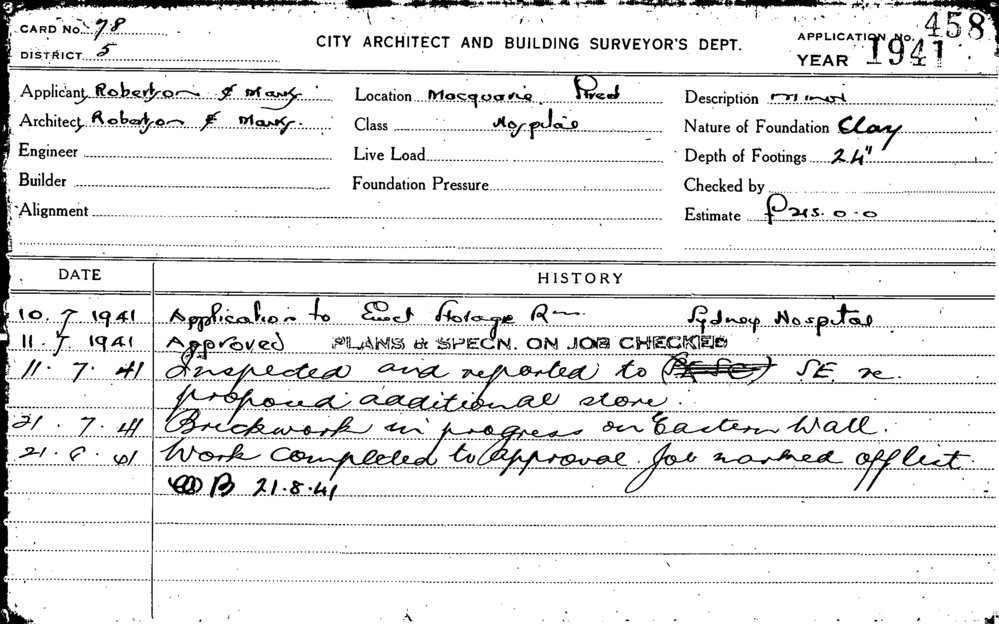 CARD No. 78
DISTRICT 5
CITY ARCHITECT AND BUILDING SURVEYOR'S DEPT.
APPLICATION No. 458
YEAR 1941
Applicant Robertson & Marks
Architect Robertson & Marks.
Engineer
Builder
Alignment
Location Macquarie Street
Class Hospital
Live Load
Foundation Pressure
Description minor
Nature of Foundation Clay
Depth of Footings 24"
Checked by
Estimate £215.0.0
DATE HISTORY
10. 7 1941 Application to Erect Storage Rm Sydney Hospital
11. 7 1941 Approved PLANS & SPECN. ON JOB CHECKED
11. 7. 41 Inspected and reported to S.E. re.
proposed additional store.
21. 7. 41 Brickwork in progress on Eastern Wall.
21. 8. 41 Work completed to approval. Job marked off list
B 21.8.41